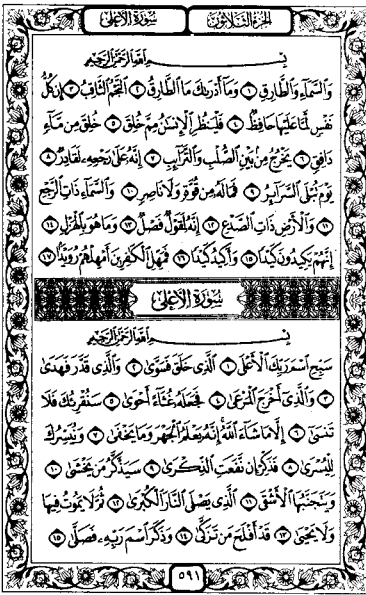 الجزء الثلاثون سورة الأعلى
بسم الله الرحمن الرحيم
والسماء والطارق ١ وما أدرىك ما الطارق ٢ النجم الثاقب ٣ إن كل
نفس لما عليها حافظ ٤ فلينظر الإنسن مم خلق ٥ خلق من ماء
دافق ٦ يخرج من بين الصلب والترائب ٧ إنه على رجعه لقادر ٨
يوم تبلى السرائر ٩ فما له من قوة ولا ناصر ١٠ والسماء ذات الرجع
١١ والأرض ذات الصدع ١٢ إنه لقول فصل ١٣ وما هو بالهزل ١٤
إنهم يكيدون كيدا ١٥ وأكيد كيدا ١٦ فمهل الكفرين أمهلهم رويدا ١٧
سورة الأعلى
بسم الله الرحمن الرحيم
سبح اسم ربك الأعلى ١ الذى خلق فسوى ٢ والذى قدر فهدى
٣ والذى أخرج المرعى ٤ فجعله غثاء أحوى ٥ سنقرئك فلا
تنسى ٦ إلا ما شاء الله إنه يعلم الجهر وما يخفى ٧ ونيسرك
لليسرى ٨ فذكر إن نفعت الذكرى ٩ سيذكر من يخشى ١٠
ويتجنبها الأشقى ١١ الذى يصلى النار الكبرى ١٢ ثم لا يموت فيها
ولا يحيى ١٣ قد أفلح من تزكى ١٤ وذكر اسم ربه فصلى ١٥
٥٩١